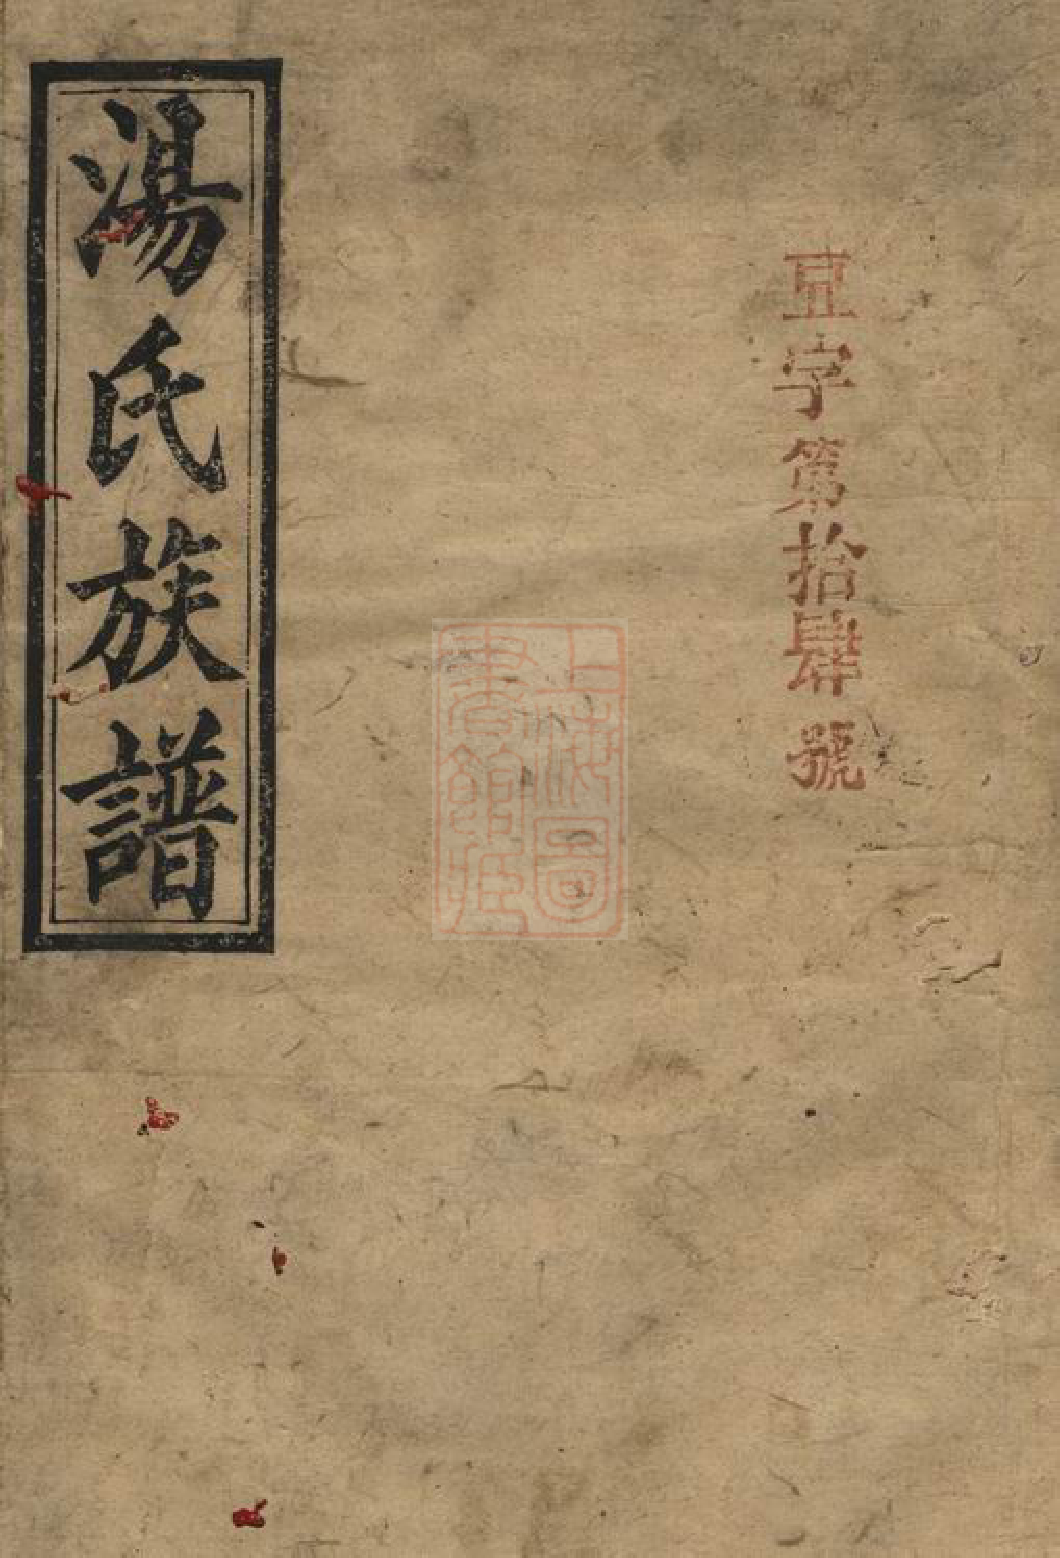 字第拾肆號
上海圖
書館藏
湯氏族譜